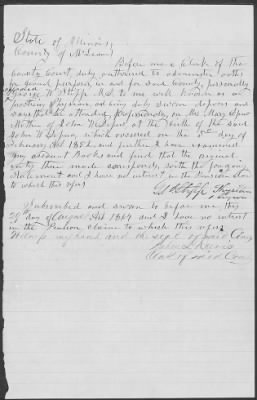 State of Illinois,
County of McLean
Before me a Clerk of the
County Court, duly authorized to administer oaths
in and for said County, personally
appeared
George W Stipp M.D. to me well known as a
practicing Physician, and being duly sworn deposes and
says that he attended, professionally, on the Mary
Mother of John W at the birth of the said
John W which occurred on the day of
February AD 1852 and further I have examined
my account Books and find that the original
entry then made corresponds with the foregoing
Statement and I have no interest in the Pension
to which this refers
G W Stipp Physician
& Surgeon
Subscribed and sworn to before me this
day of August AD 1864 and I have no interest
in the Pension claim to which this refers
Witness my hand and the seal of said
John
Clerk of said